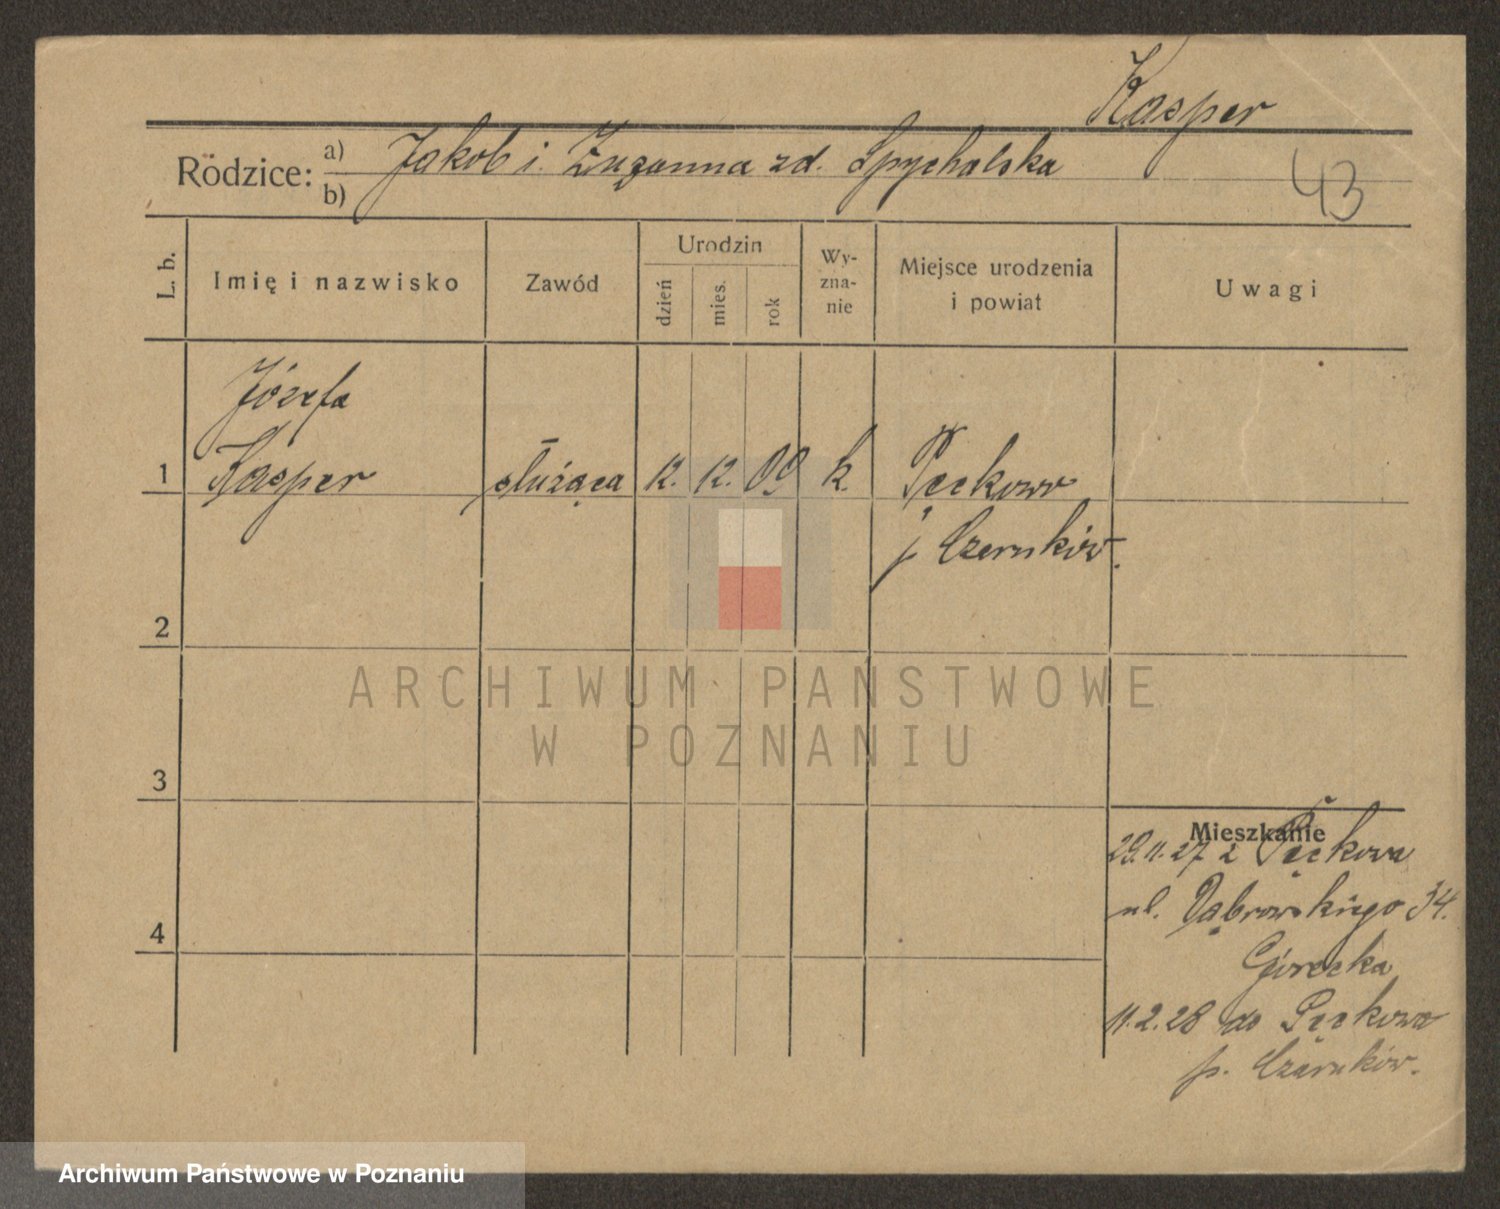 Kasper
Rodzice: a) b) Jakob i. Zuzanna zd. Spychalska
43
L. b. Imię i nazwisko Zawód Urodzin dzień mies. rok Wy-zna-nie Miejsce urodzenia i powiat Uwagi
Józefa
1 Kasper służąca 12. 12. 09 k. Pęckowo
p Czarnków.
2
ARCHIWUM PAŃSTWOWE
W POZNANIU
3
Mieszkanie
29.11.27 z Pęckowa
4 ul. Dąbrowskiego 34.
Górecka
11.2.28 do Pęckowa
p. Czarnków.
Archiwum Państwowe w Poznaniu